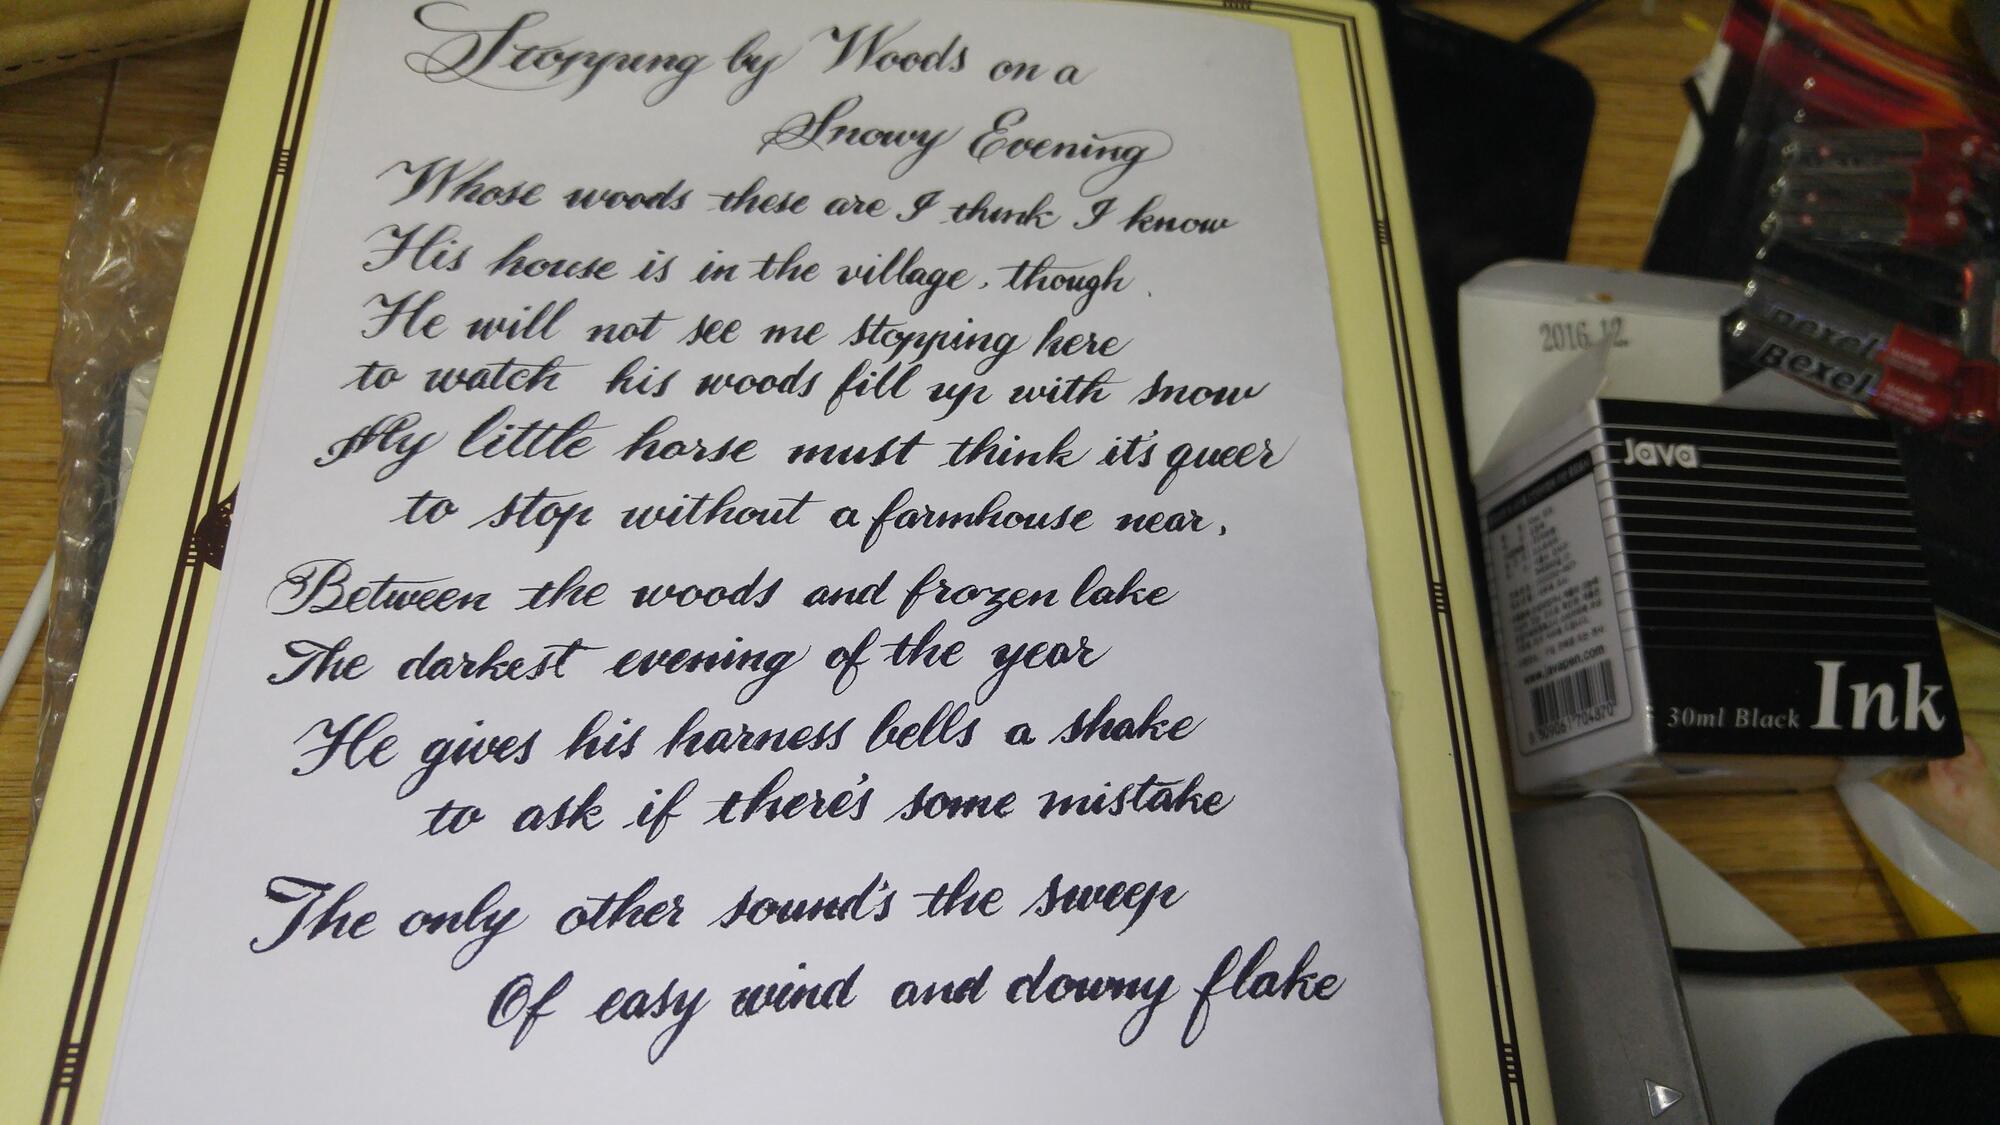 Stopping by Woods on a
Snowy Evening
Whose woods these are I think I know
His house is in the village, though
He will not see me stopping here
to watch his woods fill up with snow
My little horse must think it's queer
to stop without a farmhouse near,
Between the woods and frozen lake
The darkest evening of the year
He gives his harness bells a shake
to ask if there's some mistake
The only other sound's the sweep
Of easy wind and downy flake
2016. 12.
Bexel
Bexel
Java
www.javapen.com
30ml Black Ink